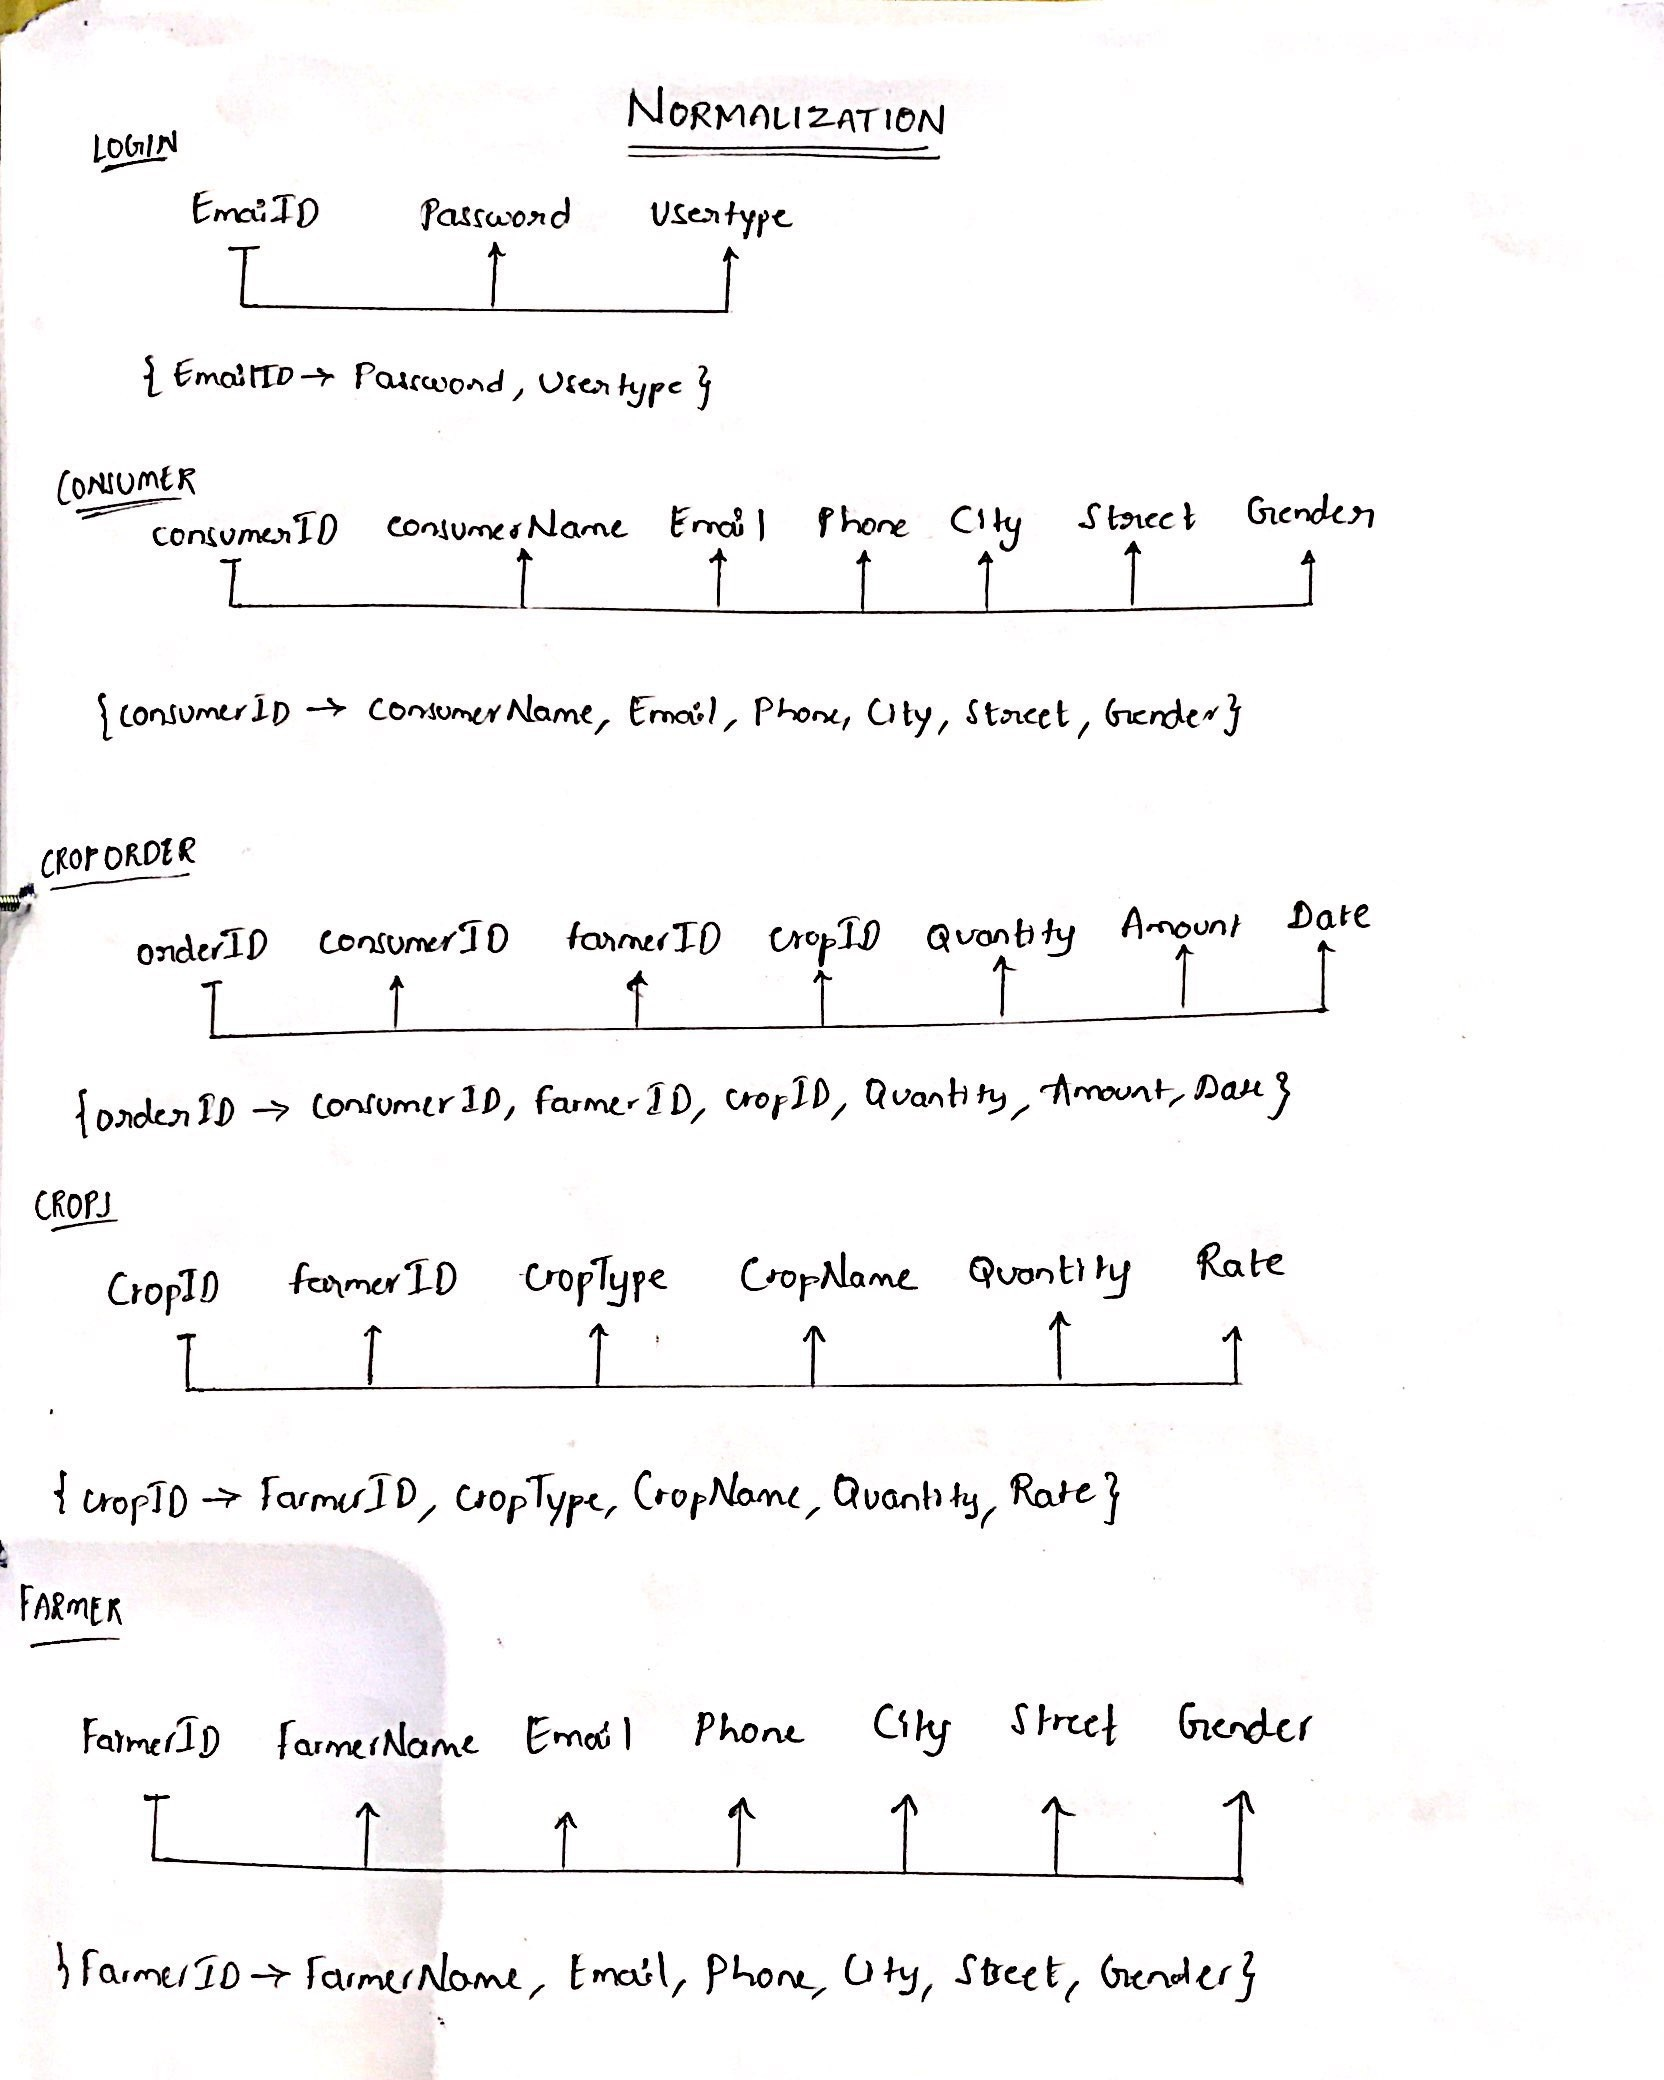 NORMALIZATION
LOGIN
EmailID Password Usertype
{ EmailID → Password, Usertype }
CONSUMER
consumerID consumerName Email Phone City Street Gender
{consumerID → consumerName, Email, Phone, City, Street, Gender}
CROPORDER
orderID consumerID farmerID cropID Quantity Amount Date
{orderID → consumerID, farmerID, cropID, Quantity, Amount, Date}
CROPS
CropID farmerID cropType CropName Quantity Rate
{cropID → FarmerID, cropType, CropName, Quantity, Rate}
FARMER
FarmerID farmerName Email Phone City Street Gender
}FarmerID → FarmerName, Email, Phone, City, Street, Gender}